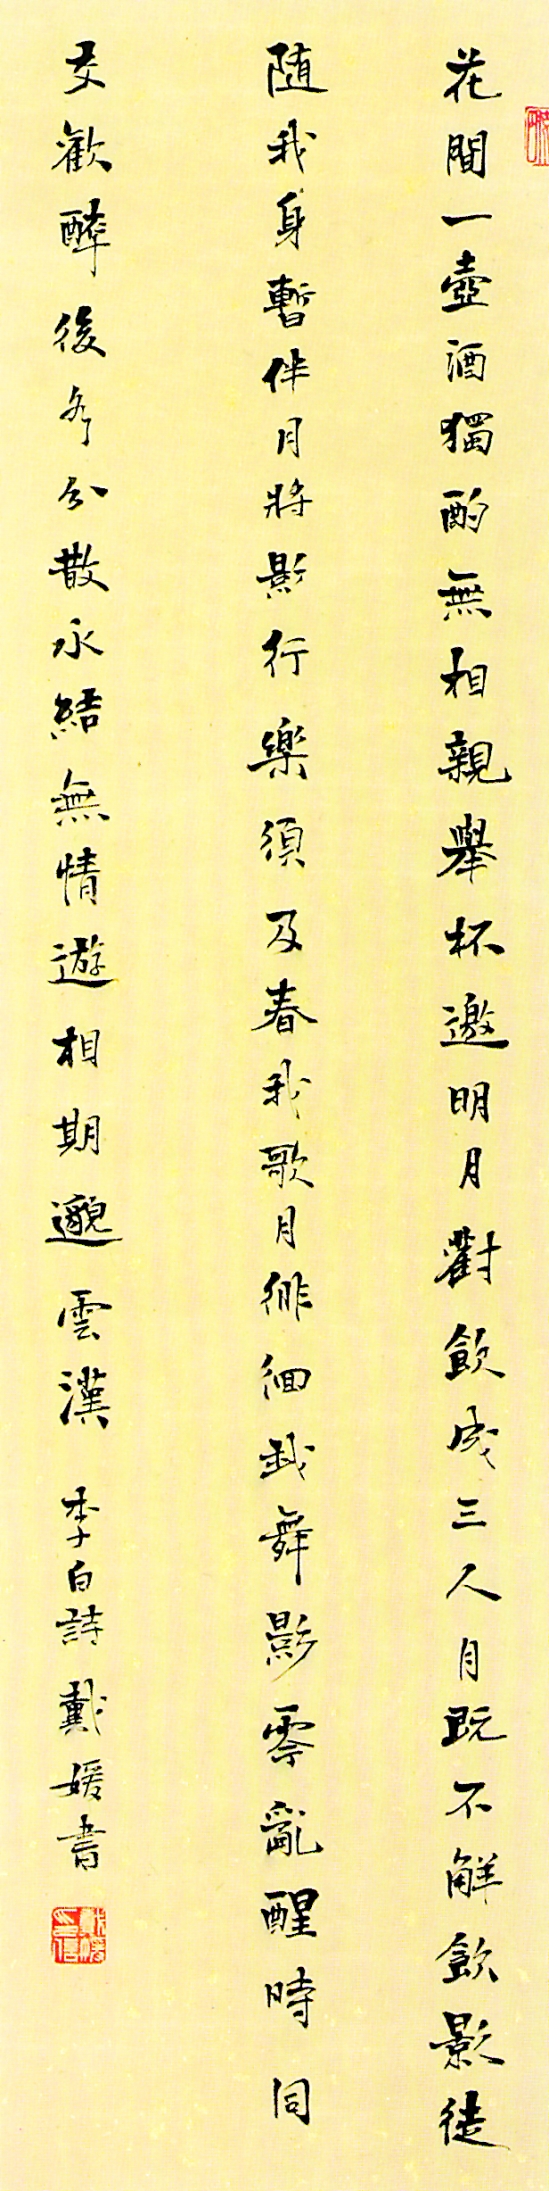 花間一壺酒獨酌無相親舉杯邀明月對飲成三人月既不解飲影徒
隨我身暫伴月將影行樂須及春我歌月徘徊我舞影零亂醒時同
交歡醉後各分散永結無情遊相期邈雲漢 李白詩戴媛書